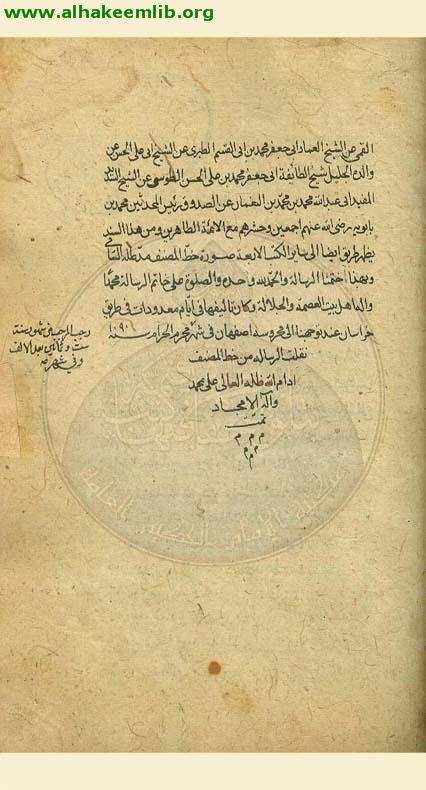 www.alhakeemlib.org
القمي عن الشيخ العماد ابي جعفر محمد بن ابي القسم الطبري عن الشيخ ابي علي الحسن عن
والده الجليل شيخ الطائفة ابي جعفر محمد بن علي الحسن الطوسي عن الشيخ السديد
المفيد ابي عبد الله محمد بن محمد بن النعمان عن الصدوق رئيس المحدثين محمد بن
بابويه رضي الله عنهم اجمعين وحشرهم مع الائمة الطاهرين ومن هذا السند
يظهر طريق ايضا الى ساير الكتب الاربعة صورة خط المصنف مد ظله السامي
وبهذا ختمنا الرسالة والحمد لله وحده والصلوة على خاتم الرسالة محمد
واله اهل بيت العصمة والجلالة وكان تاليفها في ايام معدودات في طريق
خراسان عند توجهنا الى محروسه اصفهان في شهر محرم الحرام سنة ١٠٩
نقلت الرساله من خط المصنف
ادام الله ظله العالي على محمد
واله الامجاد
تمت
م م م
م م
م
رجب المرجب في شهور سنة
ست وثمانين بعد الالف
وفي شهر